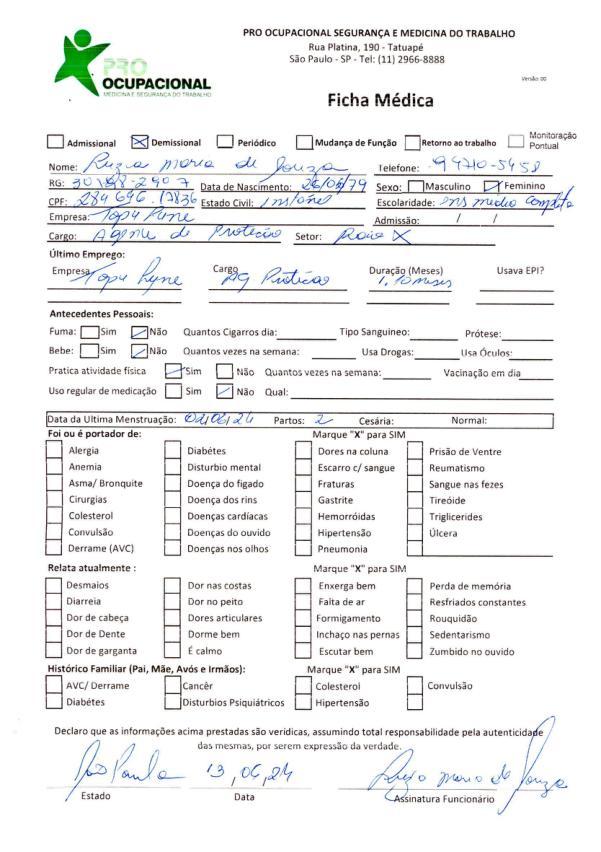 PRO OCUPACIONAL SEGURANÇA E MEDICINA DO TRABALHO
Rua Platina, 190 - Tatuapé
São Paulo - SP - Tel: (11) 2966-8888
PRO
OCUPACIONAL
MEDICINA E SEGURANÇA DO TRABALHO
Versão 00
Ficha Médica
Admissional Demissional Periódico Mudança de Função Retorno ao trabalho Monitoração Pontual
Nome: Maria de Souza Telefone:
RG: Data de Nascimento: Sexo: Masculino Feminino
CPF: Estado Civil: Escolaridade: ens medio completo
Empresa: Admissão: / /
Cargo: Agente de Protecão Setor: Raio X
Último Emprego:
Empresa Cargo AG Protecao Duração (Meses) Usava EPI?
Antecedentes Pessoais:
Fuma: Sim Não Quantos Cigarros dia: Tipo Sanguineo: Prótese:
Bebe: Sim Não Quantos vezes na semana: Usa Drogas: Usa Óculos:
Pratica atividade física Sim Não Quantos vezes na semana: Vacinação em dia
Uso regular de medicação Sim Não Qual:
Data da Ultima Menstruação: 02/06/24 Partos: 2 Cesária: Normal:
Foi ou é portador de: Marque "X" para SIM
Alergia Diabétes Dores na coluna Prisão de Ventre
Anemia Disturbio mental Escarro c/ sangue Reumatismo
Asma/ Bronquite Doença do figado Fraturas Sangue nas fezes
Cirurgias Doença dos rins Gastrite Tireóide
Colesterol Doenças cardíacas Hemorróidas Triglicerides
Convulsão Doenças do ouvido Hipertensão Úlcera
Derrame (AVC) Doenças nos olhos Pneumonia
Relata atualmente : Marque "X" para SIM
Desmaios Dor nas costas Enxerga bem Perda de memória
Diarreia Dor no peito Falta de ar Resfriados constantes
Dor de cabeça Dores articulares Formigamento Rouquidão
Dor de Dente Dorme bem Inchaço nas pernas Sedentarismo
Dor de garganta É calmo Escutar bem Zumbido no ouvido
Histórico Familiar (Pai, Mãe, Avós e Irmãos): Marque "X" para SIM
AVC/ Derrame Cancêr Colesterol Convulsão
Diabétes Disturbios Psiquiátricos Hipertensão
Declaro que as informações acima prestadas são veridicas, assumindo total responsabilidade pela autenticidade
das mesmas, por serem expressão da verdade.
São Paulo 13,06,24 Maria de Souza
Estado Data Assinatura Funcionário